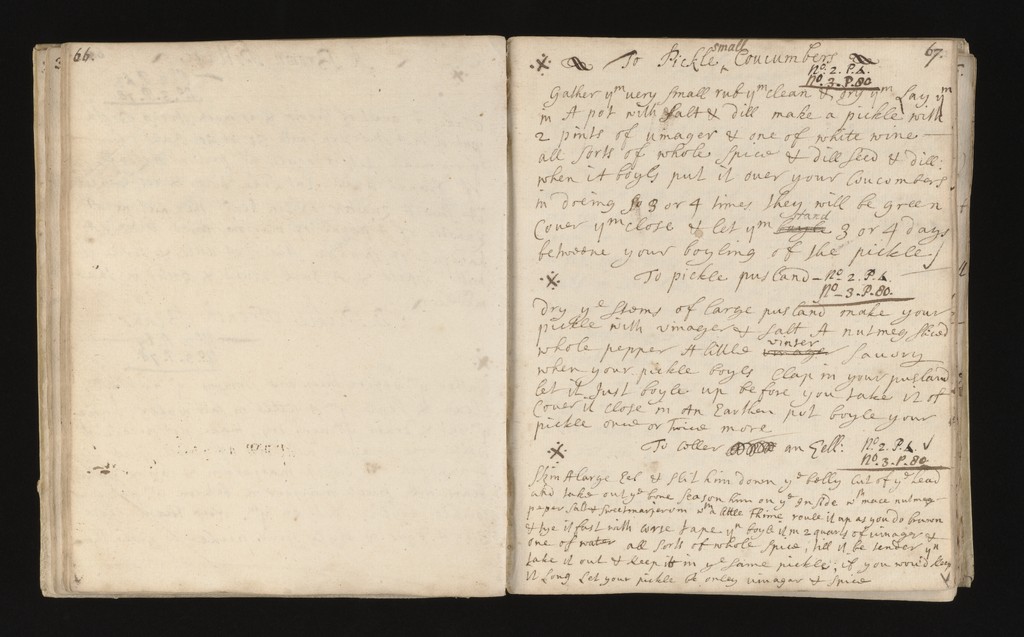 66.
67.
To Pickle small Coucumbers
No. 2. P.
No. 3. P. 80
Gather ym very small rub ym clean & dry ym Lay ym
in A pot with salt & dill make a pickle with
2 pints of vinager & one of white wine
all sorts of whole spice & dill seed & dill:
when it boyls put it over your Coucombers
in doeing so 3 or 4 times they will be green
Cover ym close & let ym stand 3 or 4 days
betweene your boyling of the pickle
To pickle pusland - No. 2. P.
No - 3. P. 80.
Dry ye stems of large pusland make your
pickle with vinager & salt A nutmeg sliced
whole pepper A little winter Savory
when your pickle boyls Clap in your pusland
let it Just boyle up before you take it of
Cover it close in An Earthen pot boyle your
pickle once or twice more
To Coller an Eell: No. 2. P.
No. 3. P. 80.
Skin A large Eel & slit him down ye belly Cut of ye head
and take out ye bone season him on ye Inside wth mace nutmeg
peper salt & sweetmarjerom wth A little Thime roule it up as you do brawn
& tye it fast with corse tape yn boyle it in 2 quarts of vinager &
one of water all sorts of whole spice; till it be tender yn
take it out & keep it in ye same pickle; if you would keep
it Long Let your pickle be onley vinager & spice